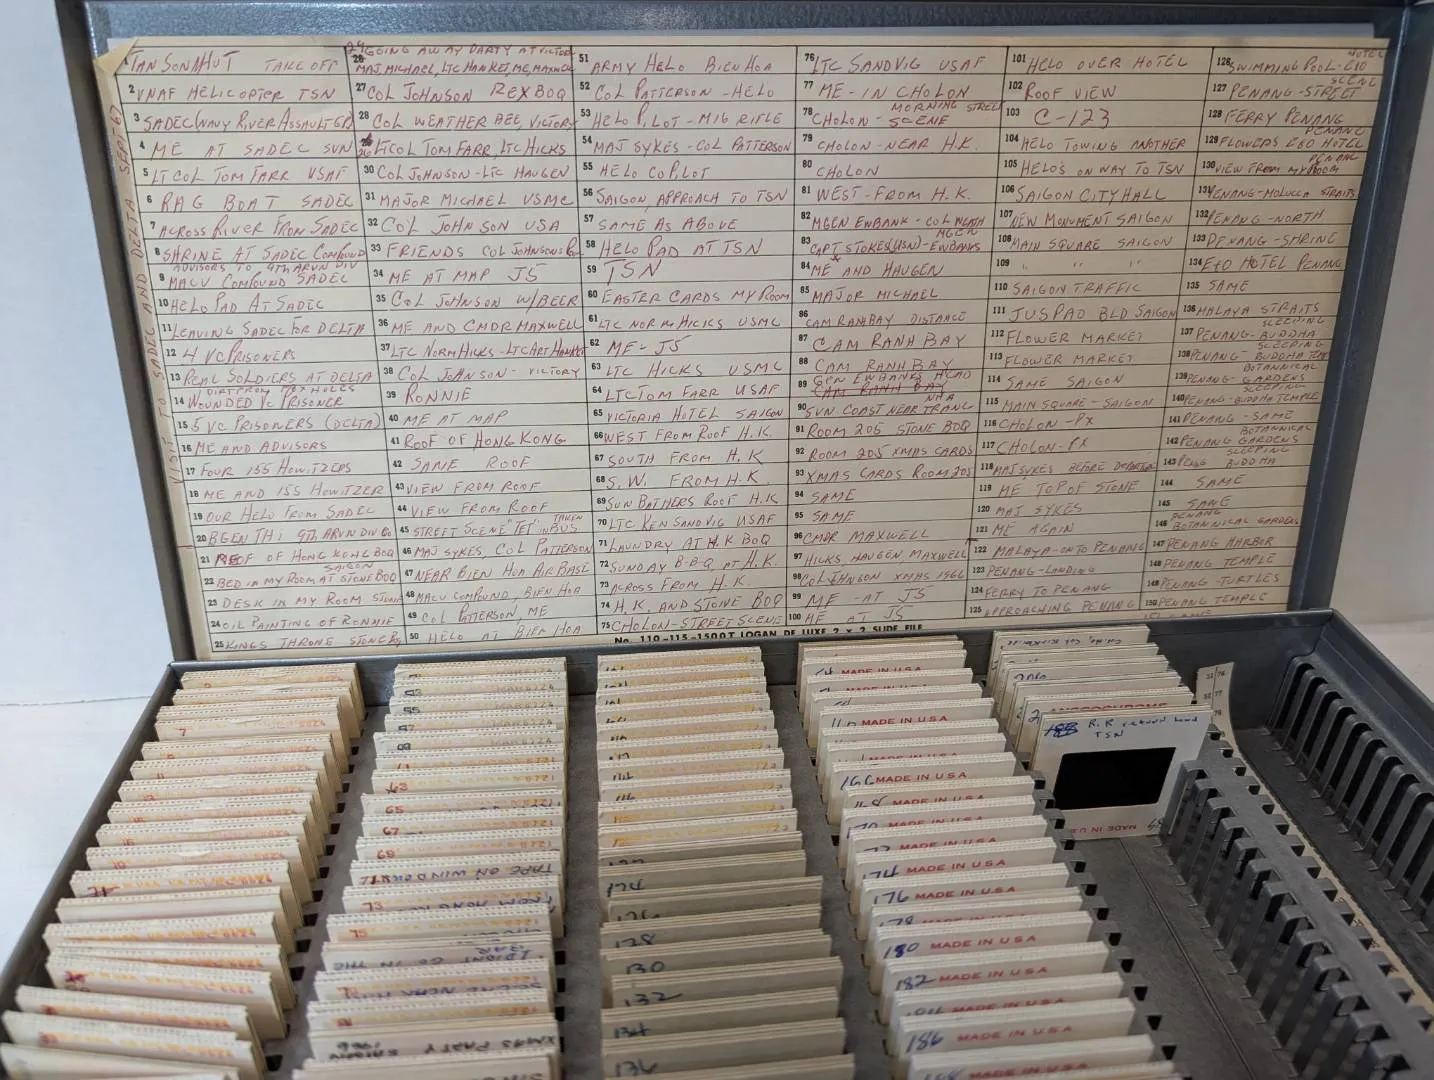 VISIT TO SADEC AND DELTA SEPT 67
1 TAN SON NHUT TAKE OFF
2 VNAF HELICOPTER TSN
3 SADEC (NAVY RIVER ASSAULT GP)
4 ME AT SADEC SUN
5 LT COL TOM FARR USAF
6 RAG BOAT SADEC
7 ACROSS RIVER FROM SADEC
8 SHRINE AT SADEC COMPOUND
ADVISORS TO 9TH ARVN DIV
9 MACV COMPOUND SADEC
10 HELO PAD AT SADEC
11 LEAVING SADEC FOR DELTA
12 4 VC PRISONERS
13 REAL SOLDIERS AT DELTA
14 WOUNDED VC PRISONER
15 5 VC PRISONERS (DELTA)
16 ME AND ADVISORS
17 FOUR 155 HOWITZERS
18 ME AND 155 HOWITZER
19 OUR HELO FROM SADEC
20 BGEN THI 9TH ARVN DIV
21 ROOF OF HONG KONG BOQ
SAIGON
22 BED IN MY ROOM AT STONE BOQ
23 DESK IN MY ROOM STONE
24 OIL PAINTING OF RONNIE
25 KINGS THRONE STONE BQ
GOING AWAY PARTY AT VICTORIA
26 MAJ. MICHAEL, LTC HANKET, ME, MAXWELL
27 COL JOHNSON REX BOQ
28 COL WEATHER BEE, VICTORY
LTCOL TOM FARR, LTC HICKS
30 COL JOHNSON - LTC HAUGEN
31 MAJOR MICHAEL USMC
32 COL JOHNSON USA
33 FRIENDS COL JOHNSONS
34 ME AT MAP J5
35 COL JOHNSON W/BEER
36 ME AND CMDR MAXWELL
37 LTC NORM HICKS - LTC ART HANKET
38 COL JOHNSON - VICTORY
39 RONNIE
40 ME AT MAP
41 ROOF OF HONG KONG
42 SAME ROOF
43 VIEW FROM ROOF
44 VIEW FROM ROOF
45 STREET SCENE "TET" TAKEN IN BUS
46 MAJ SYKES COL PATTERSON
47 NEAR BIEN HOA AIR BASE
48 MACV COMPOUND, BIEN HOA
49 COL PATTERSON, ME
50 HELO AT BIEN HOA
51 ARMY HELO BIEN HOA
52 COL PATTERSON - HELO
53 HELO PILOT - M16 RIFLE
54 MAJ SYKES - COL PATTERSON
55 HELO COPILOT
56 SAIGON, APPROACH TO TSN
57 SAME AS ABOVE
58 HELO PAD AT TSN
59 TSN
60 EASTER CARDS MY ROOM
61 LTC NORM HICKS USMC
62 ME - J5
63 LTC HICKS USMC
64 LTC TOM FARR USAF
65 VICTORIA HOTEL SAIGON
66 WEST FROM ROOF H.K.
67 SOUTH FROM H.K.
68 S.W. FROM H.K.
69 SUN BATHERS ROOF H.K
70 LTC KEN SANDVIG USAF
71 LAUNDRY AT H.K BOQ
72 SUNDAY B-B-Q AT H.K.
73 ACROSS FROM H.K.
74 H.K. AND STONE BOQ
75 CHOLON - STREET SCENE
76 LTC SANDVIG USAF
77 ME - IN CHOLON
78 CHOLON - MORNING STREET SCENE
79 CHOLON - NEAR H.K.
80 CHOLON
81 WEST - FROM H.K.
82 MGEN EWBANK - COL
83 CAPT STOKES (USN) - MGEN EWBANKS
84 ME AND HAUGEN
85 MAJOR MICHAEL
86 CAM RANH BAY DISTANCE
87 CAM RANH BAY
88 CAM RANH BAY
89 GEN EWBANKS HEAD
CAM RANH BAY
90 SVN COAST NEAR NHA TRANG
91 ROOM 205 STONE BOQ
92 ROOM 205 XMAS CARDS
93 XMAS CARDS ROOM 205
94 SAME
95 SAME
96 CMDR MAXWELL
97 HICKS, HAUGEN MAXWELL
98 COL JOHNSON XMAS 1966
99 ME - AT J5
100 ME AT J5
101 HELO OVER HOTEL
102 ROOF VIEW
103 C-123
104 HELO TOWING ANOTHER
105 HELO'S ON WAY TO TSN
106 SAIGON CITY HALL
107 NEW MONUMENT SAIGON
108 MAIN SQUARE SAIGON
109 " " "
110 SAIGON TRAFFIC
111 JUSPAO BLD SAIGON
112 FLOWER MARKET
113 FLOWER MARKET
114 SAME SAIGON
115 MAIN SQUARE - SAIGON
116 CHOLON - PX
117 CHOLON - PX
118 MAJ SYKES BEFORE DEPARTURE
119 ME TOP OF STONE
120 MAJ SYKES
121 ME AGAIN
122 MALAYA - ON TO PENANG
123 PENANG - LANDING
124 FERRY TO PENANG
125 APPROACHING PENANG
126 SWIMMING POOL - E&O HOTEL
127 PENANG - STREET SCENE
128 FERRY PENANG
129 FLOWERS E&O HOTEL PENANG
130 VIEW FROM MY ROOM PENANG
131 PENANG - MOLUCCA STRAITS
132 PENANG - NORTH
133 PENANG - SHRINE
134 E&O HOTEL PENANG
135 SAME
136 MALAYA STRAITS
137 PENANG - SLEEPING BUDDHA
138 PENANG - SLEEPING BUDDHA TEMPLE
139 PENANG - BOTANNICAL GARDENS
140 PENANG - SLEEPING BUDDHA TEMPLE
141 PENANG - SAME
142 PENANG BOTANNICAL GARDENS
143 PENG SLEEPING BUDDHA
144 SAME
145 SAME
146 PENANG BOTANNICAL GARDENS
147 PENANG HARBOR
148 PENANG TEMPLE
149 PENANG TURTLES
150 PENANG TEMPLE
No. 110-115-1500T LOGAN DE LUXE 2 x 2 SLIDE FILE
R.R return
TSN
MADE IN U.S.A
7
55
63
65
67
69
TAPE ON WINDOW
73
FROM HONG KONG
75
XMAS PARTY
SAIGON 1966
124
128
130
132
134
136
MADE IN USA
MADE IN USA
MADE IN USA
166 MADE IN USA
MADE IN USA
170 MADE IN USA
MADE IN USA
174 MADE IN USA
176 MADE IN USA
178 MADE IN USA
180 MADE IN USA
182 MADE IN USA
MADE IN USA
186 MADE IN USA
MADE IN USA
206